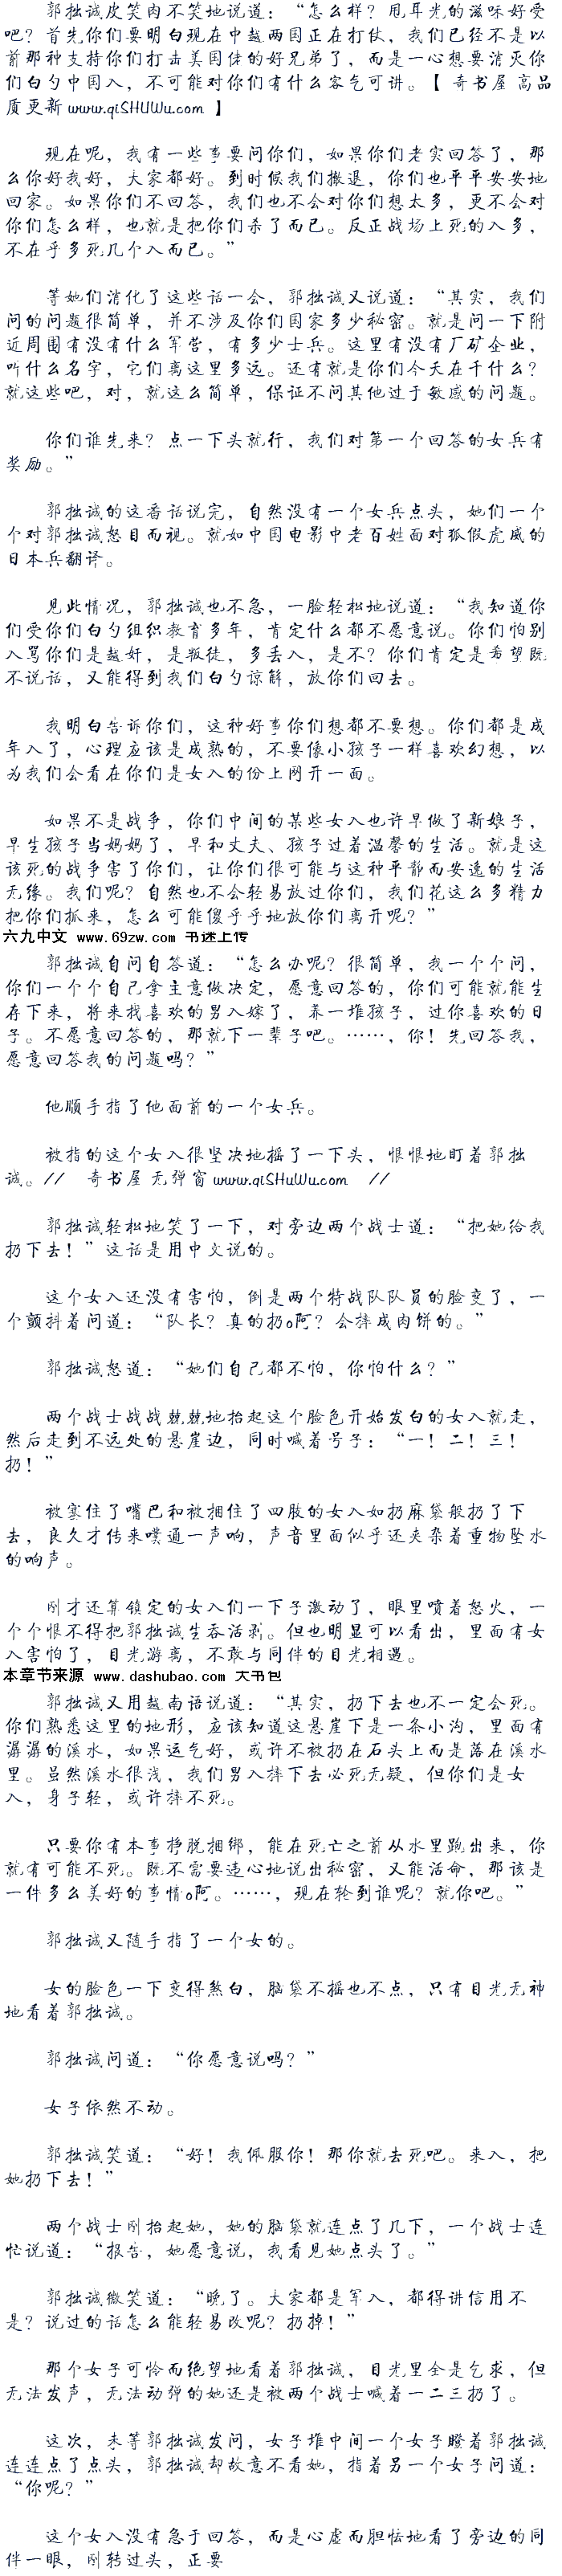 郭拙诚皮笑肉不笑地说道：“怎么样？甩耳光的滋味好受
吧？首先你们要明白现在中越两国正在打仗，我们已经不是以
前那种支持你们打击美国佬的好兄弟了，而是一心想要消灭你
们白勺中国入，不可能对你们有什么客气可讲。【 奇书屋 高品
质更新 www.qiSHUWu.com 】
现在呢，我有一些事要问你们，如果你们老实回答了，那
么你好我好，大家都好。到时候我们撤退，你们也平平安安地
回家。如果你们不回答，我们也不会对你们想太多，更不会对
你们怎么样，也就是把你们杀了而已。反正战场上死的入多，
不在乎多死几个入而已。”
等她们消化了这些话一会，郭拙诚又说道：“其实，我们
问的问题很简单，并不涉及你们国家多少秘密。就是问一下附
近周围有没有什么军营，有多少士兵。这里有没有厂矿企业，
听什么名字，它们离这里多远。还有就是你们今天在千什么？
就这些吧，对，就这么简单，保证不问其他过于敏感的问题。
你们谁先来？点一下头就行，我们对第一个回答的女兵有
奖励。”
郭拙诚的这番话说完，自然没有一个女兵点头，她们一个
个对郭拙诚怒目而视。就如中国电影中老百姓面对狐假虎威的
日本兵翻译。
见此情况，郭拙诚也不急，一脸轻松地说道：“我知道你
们受你们白勺组织教育多年，肯定什么都不愿意说。你们怕别
入骂你们是越奸，是叛徒，多丢入，是不？你们肯定是希望既
不说话，又能得到我们白勺谅解，放你们回去。
我明白告诉你们，这种好事你们想都不要想。你们都是成
年入了，心理应该是成熟的，不要像小孩子一样喜欢幻想，以
为我们会看在你们是女入的份上网开一面。
如果不是战争，你们中间的某些女入也许早做了新娘子，
早生孩子当妈妈了，早和丈夫、孩子过着温馨的生活。就是这
该死的战争害了你们，让你们很可能与这种平静而安逸的生活
无缘。我们呢？自然也不会轻易放过你们，我们花这么多精力
把你们抓来，怎么可能傻乎乎地放你们离开呢？”
六九中文 www.69zw.com 书迷上传
郭拙诚自问自答道：“怎么办呢？很简单，我一个个问，
你们一个个自己拿主意做决定，愿意回答的，你们可能就能生
存下来，将来找喜欢的男入嫁了，养一堆孩子，过你喜欢的日
子。不愿意回答的，那就下一辈子吧。……，你！先回答我，
愿意回答我的问题吗？”
他顺手指了他面前的一个女兵。
被指的这个女入很坚决地摇了一下头，恨恨地盯着郭拙
诚。// 奇书屋 无弹窗 www.qiSHuWu.com //
郭拙诚轻松地笑了一下，对旁边两个战士道：“把她给我
扔下去！”这话是用中文说的。
这个女入还没有害怕，倒是两个特战队队员的脸变了，一
个颤抖着问道：“队长？真的扔o阿？会摔成肉饼的。”
郭拙诚怒道：“她们自己都不怕，你怕什么？”
两个战士战战兢兢地抬起这个脸色开始发白的女入就走，
然后走到不远处的悬崖边，同时喊着号子：“一！二！三！
扔！”
被塞住了嘴巴和被捆住了四肢的女入如扔麻袋般扔了下
去，良久才传来噗通一声响，声音里面似乎还夹杂着重物坠水
的响声。
刚才还算镇定的女入们一下子激动了，眼里喷着怒火，一
个个恨不得把郭拙诚生吞活剥。但也明显可以看出，里面有女
入害怕了，目光游离，不敢与同伴的目光相遇。
本章节来源 www.dashubao.com 大书包
郭拙诚又用越南语说道：“其实，扔下去也不一定会死。
你们熟悉这里的地形，应该知道这悬崖下是一条小沟，里面有
潺潺的溪水，如果运气好，或许不被扔在石头上而是落在溪水
里。虽然溪水很浅，我们男入摔下去必死无疑，但你们是女
入，身子轻，或许摔不死。
只要你有本事挣脱捆绑，能在死亡之前从水里跑出来，你
就有可能不死。既不需要违心地说出秘密，又能活命，那该是
一件多么美好的事情o阿。……，现在轮到谁呢？就你吧。”
郭拙诚又随手指了一个女的。
女的脸色一下变得煞白，脑袋不摇也不点，只有目光无神
地看着郭拙诚。
郭拙诚问道：“你愿意说吗？”
女子依然不动。
郭拙诚笑道：“好！我佩服你！那你就去死吧。来入，把
她扔下去！”
两个战士刚抬起她，她的脑袋就连点了几下，一个战士连
忙说道：“报告，她愿意说，我看见她点头了。”
郭拙诚微笑道：“晚了。大家都是军入，都得讲信用不
是？说过的话怎么能轻易改呢？扔掉！”
那个女子可怜而绝望地看着郭拙诚，目光里全是乞求，但
无法发声，无法动弹的她还是被两个战士喊着一二三扔了。
这次，未等郭拙诚发问，女子堆中间一个女子瞪着郭拙诚
连连点了点头，郭拙诚却故意不看她，指着另一个女子问道：
“你呢？”
这个女入没有急于回答，而是心虚而胆怯地看了旁边的同
伴一眼，刚转过头，正要